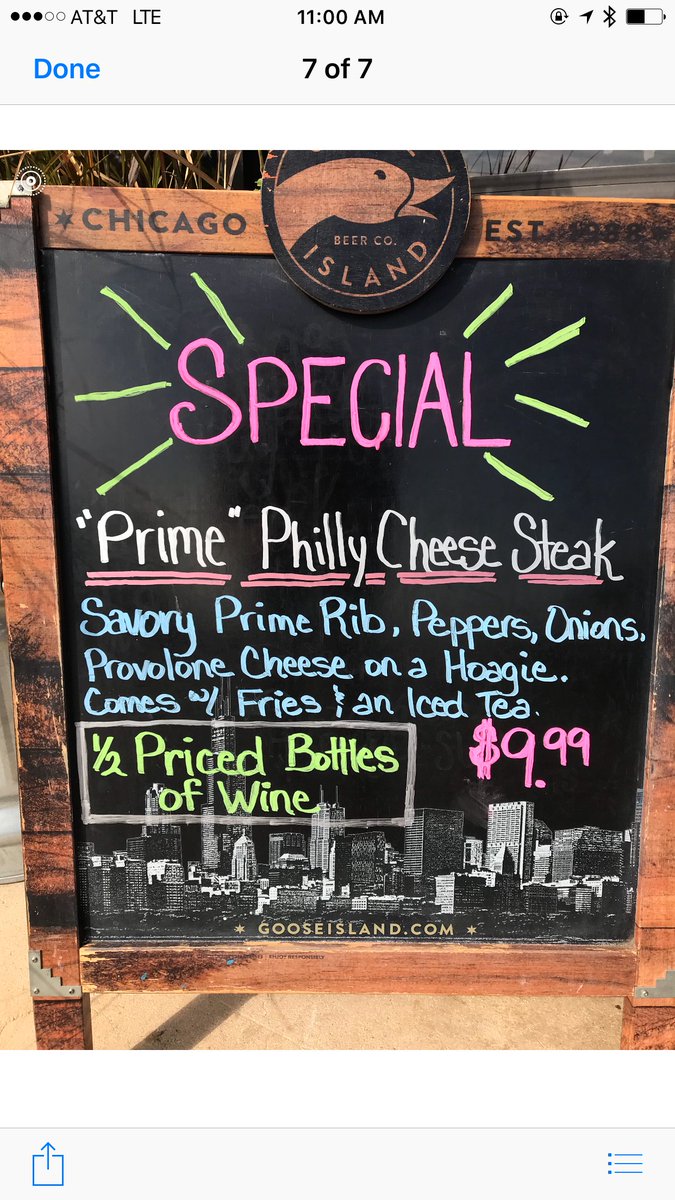 AT&T LTE
11:00 AM
Done
7 of 7
CHICAGO
BEER CO.
ISLAND
EST.
SPECIAL
"Prime" Philly Cheese Steak
Savory Prime Rib, Peppers, Onions,
Provolone Cheese on a Hoagie.
Comes w/ Fries & an Iced Tea.
$9.99
1/2 Priced Bottles
of Wine
GOOSEISLAND.COM
ENJOY RESPONSIBLY